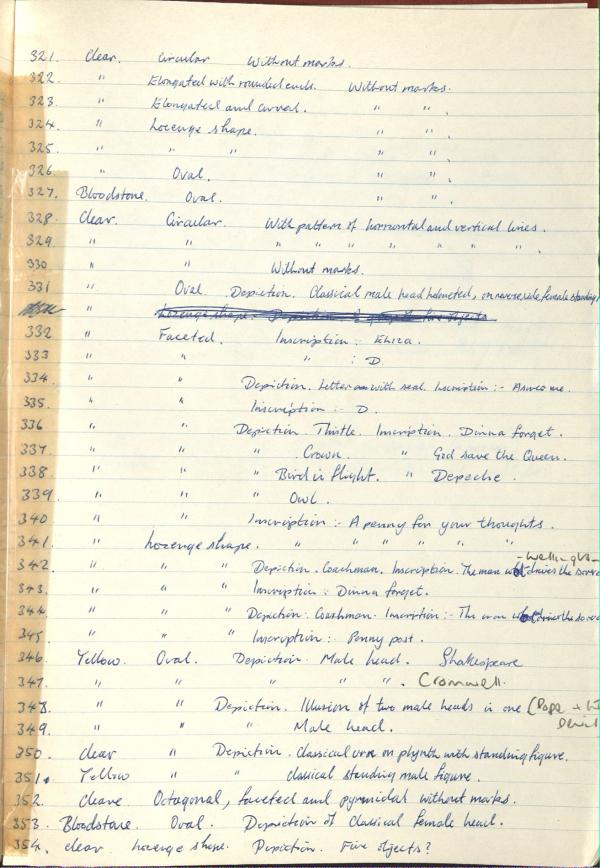 321. Clear. Circular Without marks.
322. " Elongated with rounded ends. Without marks.
323. " Elongated and curved. " " .
324. " Lozenge shape. " " .
325. " " " " " .
326. " Oval. " " .
327. Bloodstone. Oval. " " .
328. Clear. Circular. With pattern of horizontal and vertical lines.
329. " " " " " " " " " .
330 " " Without marks.
331 " Oval. Depiction. Classical male head helmeted, on reverse side female standing
" Lozenge shape. Depiction five objects
332 " Faceted. Inscription : Eliza.
333 " " " : D.
334. " " Depiction. Letter with seal. Inscription :- Answer me.
335. " " Inscription :- D.
336 " " Depiction. Thistle. Inscription. Dinna forget.
337. " " " Crown. " God save the Queen.
338 " " " Bird in flight. " Depeche.
339. " " " Owl.
340. " " Inscription :- A penny for your thoughts.
341. " Lozenge shape. " " " " " "
- Wellington -
342. " " " Depiction. Coachman. Inscription. The man wot drives the
343. " " " Inscription : Dinna forget.
344. " " " Depiction. Coachman. Inscription :- The man wot drives the
345. " " " Inscription :- Penny post.
346. Yellow. Oval. Depiction. Male head. Shakespeare
347. " " " " " . Cromwell.
348. " " Depiction. Illusion of two male heads in one (Pope +
349. " " " Male head. Devil
350. Clear " Depiction. Classical urn on plynth with standing figure.
351. Yellow " " classical standing male figure.
352. Cleave Octagonal, faceted and pyramidal without marks.
353. Bloodstone. Oval. Depiction of classical female head.
354. clear Lozenge shape. Depiction. Five objects?